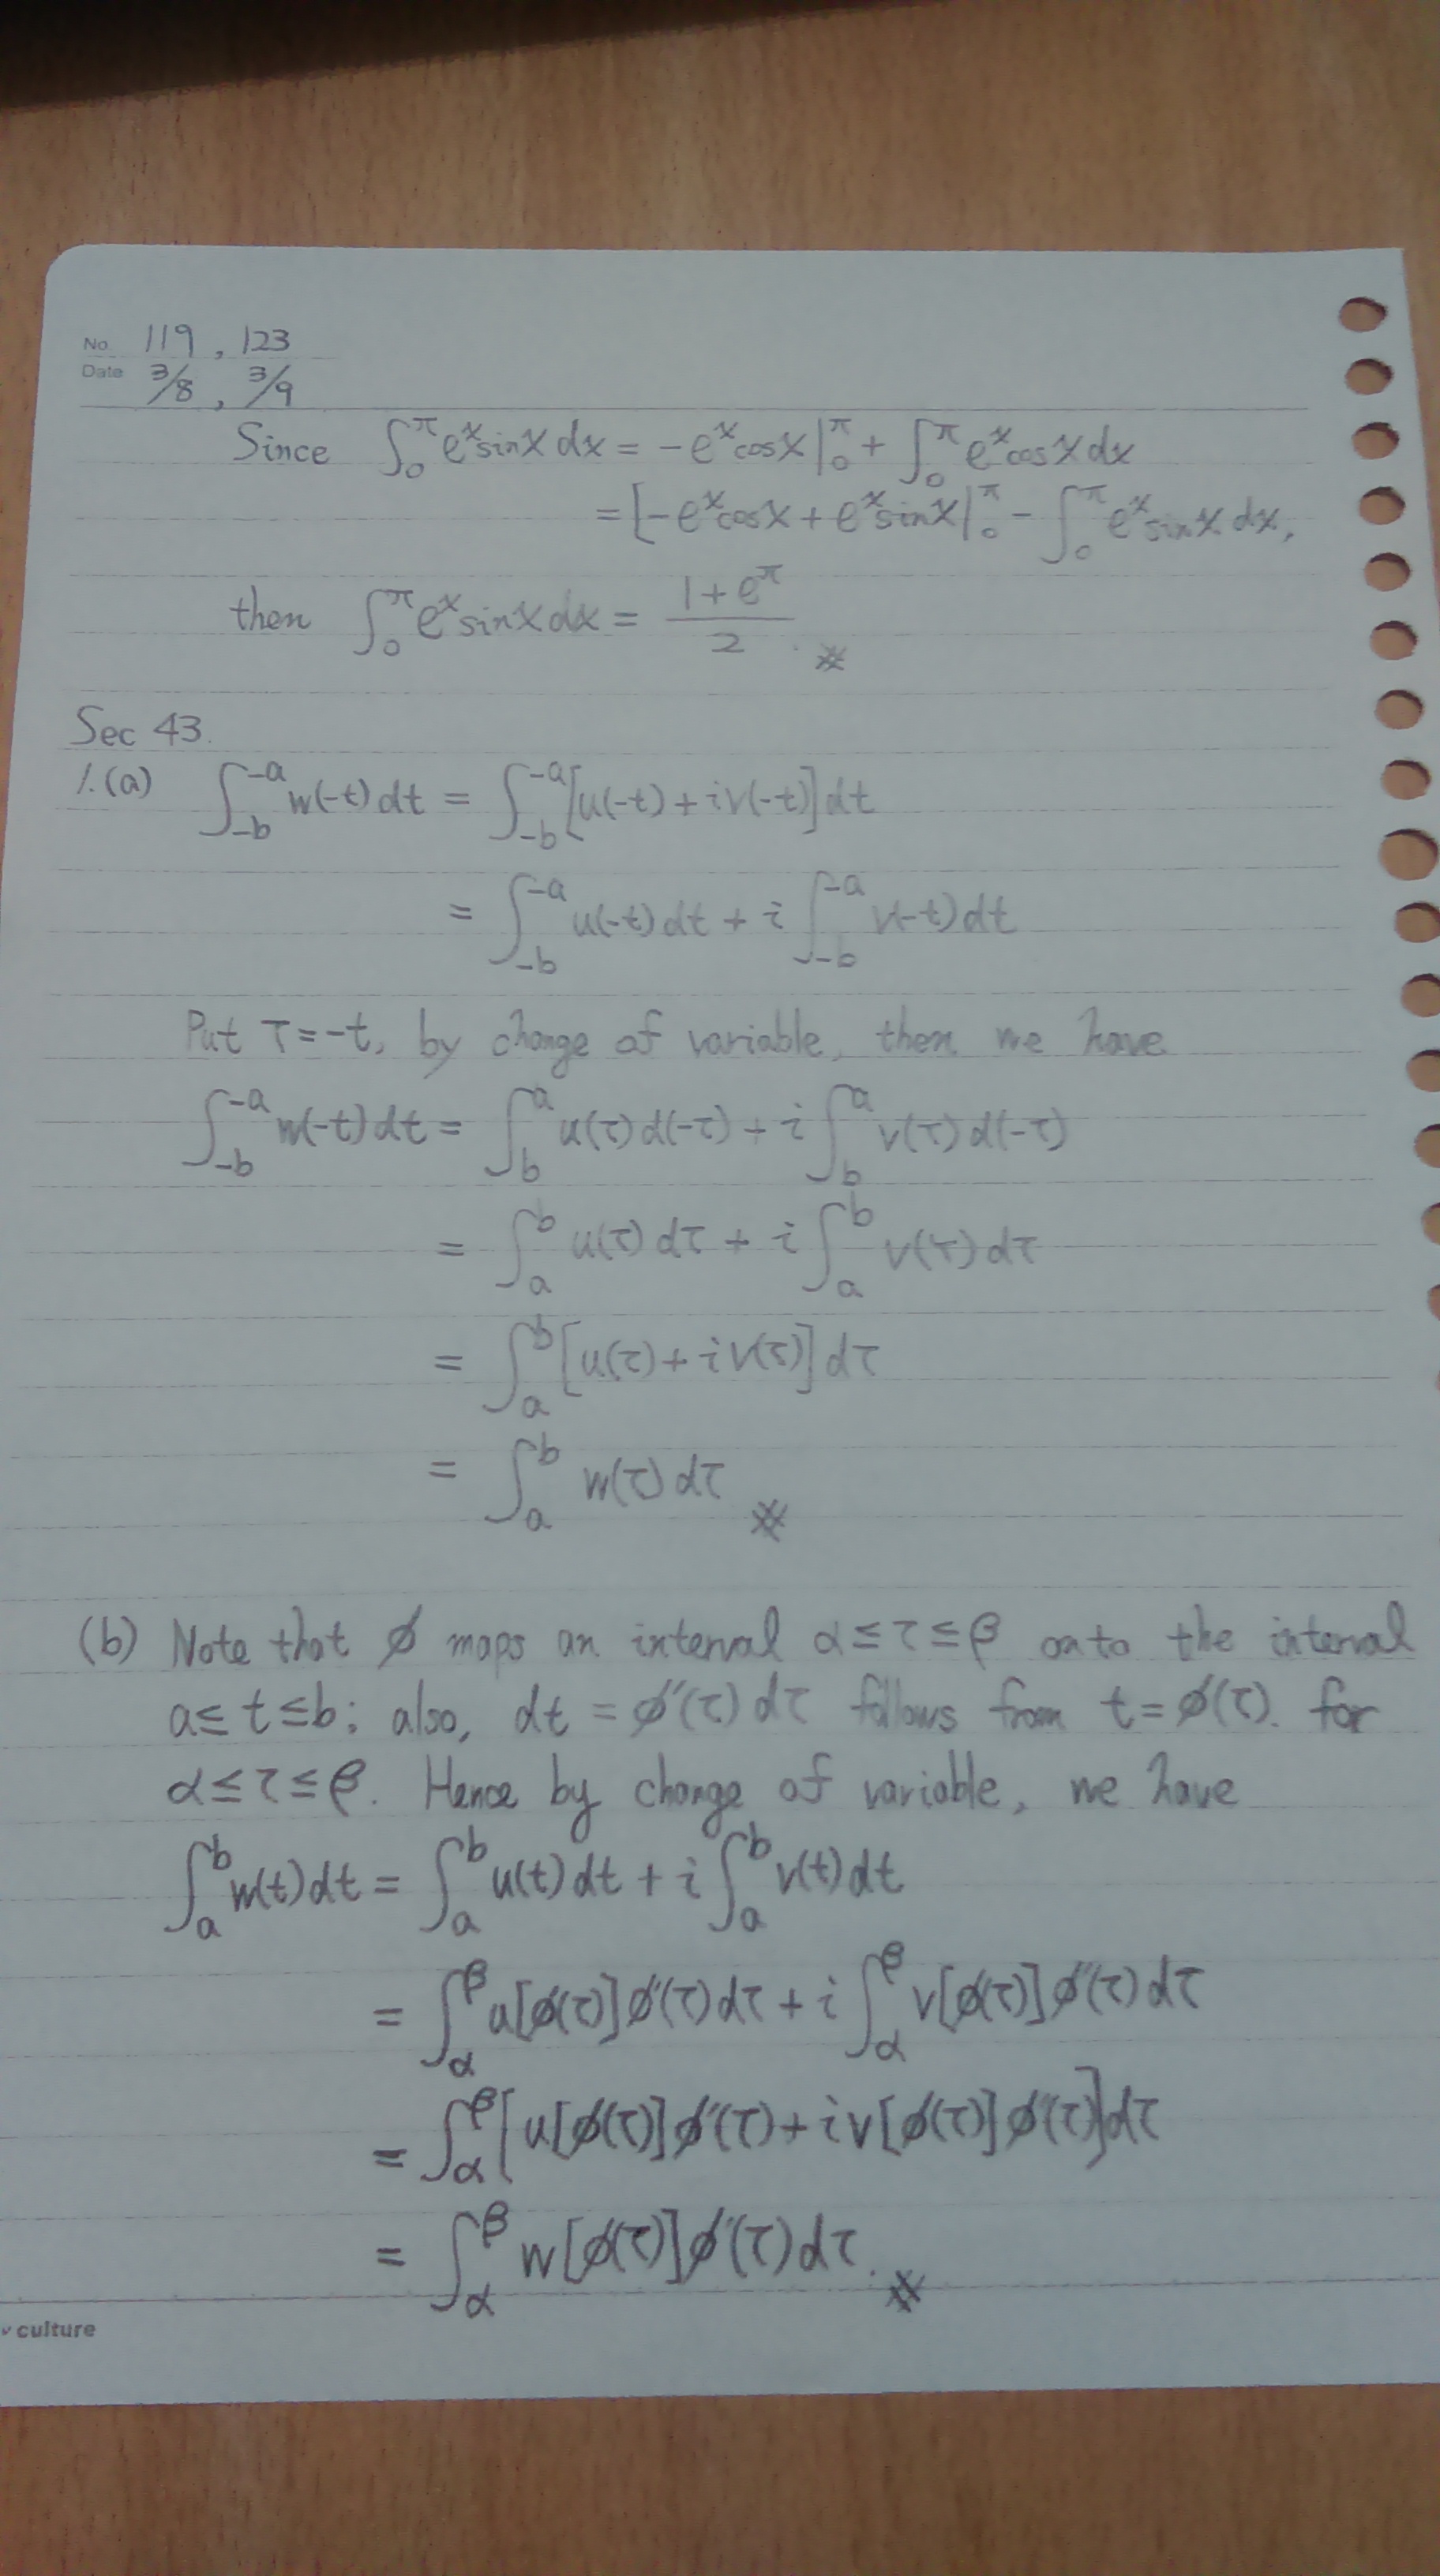 No. 119, 123
Date 3/8, 3/9
Since ∫₀^π eˣ sin x dx = -eˣ cos x |₀^π + ∫₀^π eˣ cos x dx
= [-eˣ cos x + eˣ sin x |₀^π - ∫₀^π eˣ sin x dx,
then ∫₀^π eˣ sin x dx = (1+e^π)/2 . ※
Sec 43.
1.(a) ∫_{-b}^{-a} w(-t) dt = ∫_{-b}^{-a} [u(-t) + iv(-t)] dt
= ∫_{-b}^{-a} u(-t) dt + i ∫_{-b}^{-a} v(-t) dt
Put τ = -t, by change of variable, then we have
∫_{-b}^{-a} w(-t) dt = ∫_b^a u(τ) d(-τ) + i ∫_b^a v(τ) d(-τ)
= ∫_a^b u(τ) dτ + i ∫_a^b v(τ) dτ
= ∫_a^b [u(τ) + iv(τ)] dτ
= ∫_a^b w(τ) dτ ※
(b) Note that ϕ maps an interval α ≤ τ ≤ β onto the interval
a ≤ t ≤ b; also, dt = ϕ'(τ) dτ follows from t = ϕ(τ). for
α ≤ τ ≤ β. Hence by change of variable, we have
∫_a^b w(t) dt = ∫_a^b u(t) dt + i ∫_a^b v(t) dt
= ∫_α^β u[ϕ(τ)] ϕ'(τ) dτ + i ∫_α^β v[ϕ(τ)] ϕ'(τ) dτ
= ∫_α^β [u[ϕ(τ)] ϕ'(τ) + iv[ϕ(τ)] ϕ'(τ)] dτ
= ∫_α^β w[ϕ(τ)] ϕ'(τ) dτ. ※
culture